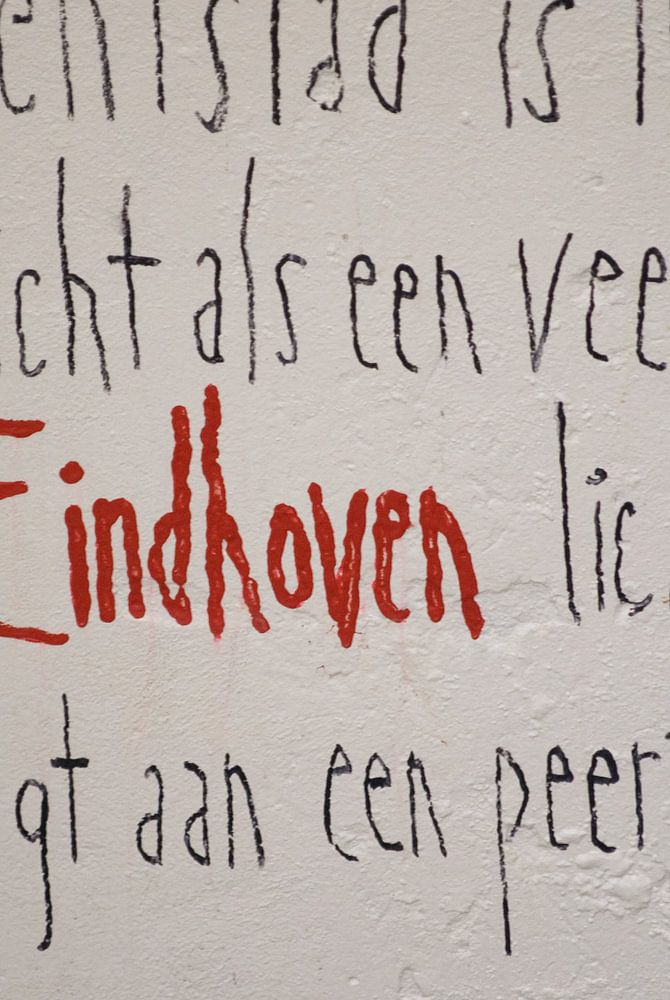 entstad is l
icht als een vee
Eindhoven lic
gt aan een peer